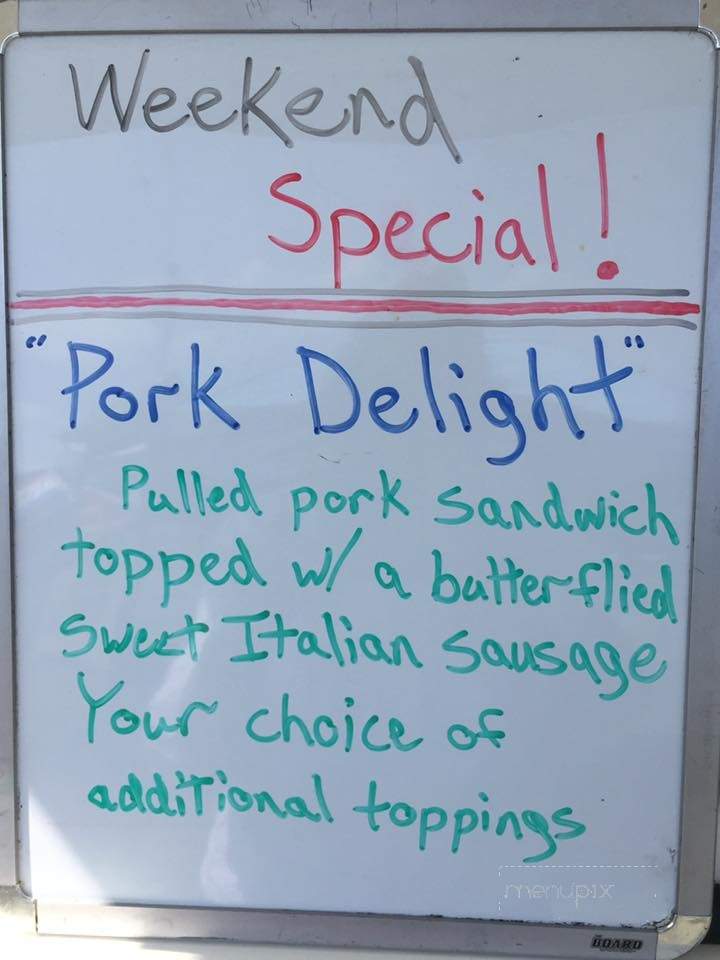 Weekend
Special!
"Pork Delight"
Pulled pork sandwich
topped w/ a butterflied
Sweet Italian sausage
Your choice of
additional toppings
menupix
THE BOARD